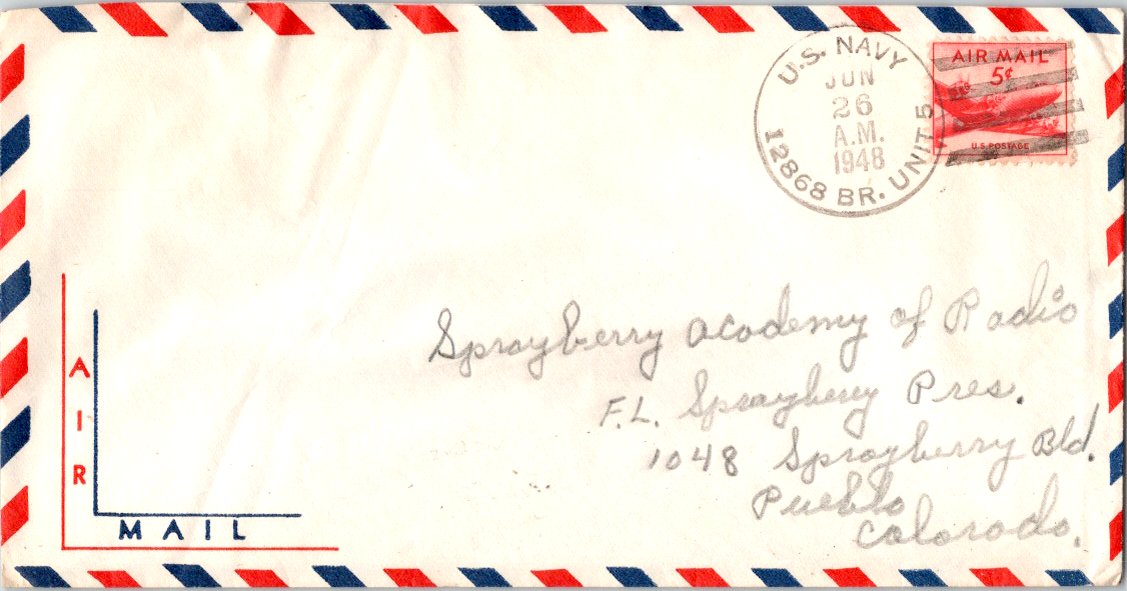 U.S. NAVY
JUN
26
A.M.
1948
12868 BR. UNIT 5
AIR MAIL
5¢
U.S. POSTAGE
Sprayberry Academy of Radio
F.L. Sprayberry Pres.
1048 Sprayberry Bld.
Pueblo
Colorado.
AIR
MAIL